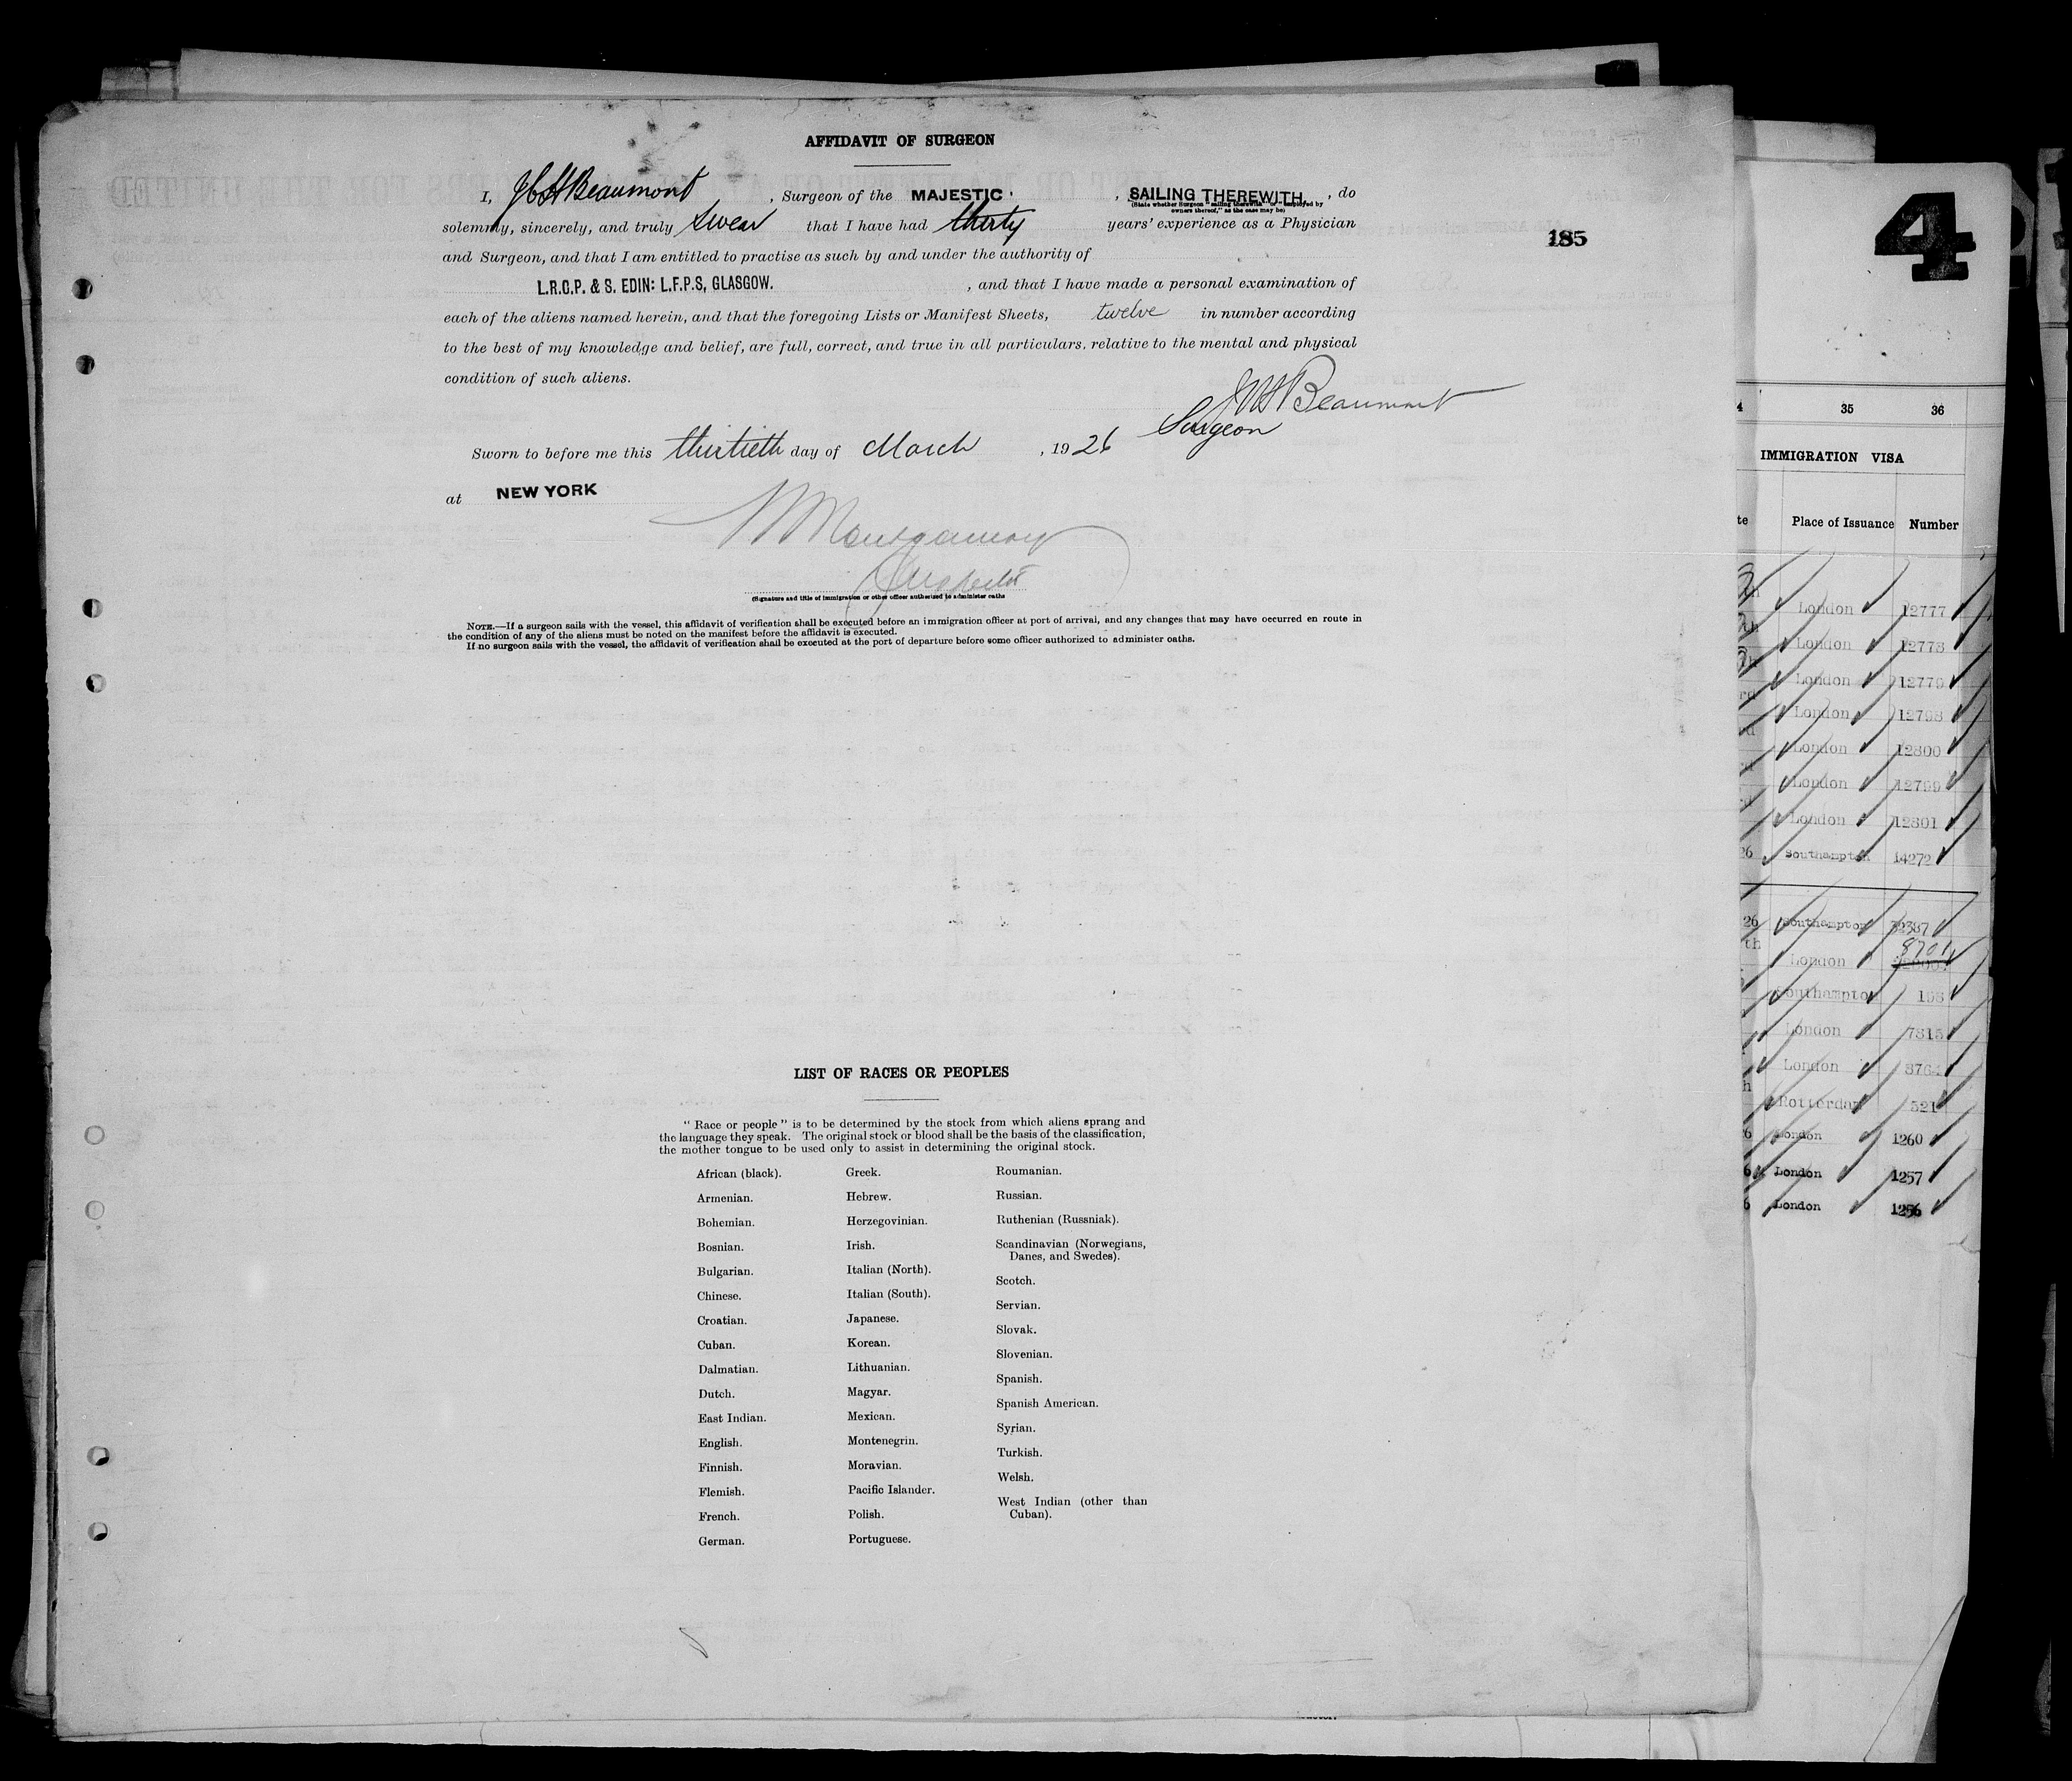 AFFIDAVIT OF SURGEON
I, J C H Beaumont, Surgeon of the MAJESTIC, SAILING THEREWITH, do
(State whether Surgeon "sailing therewith" or "employed by
owners thereof," as the case may be)
solemnly, sincerely, and truly swear that I have had thirty years' experience as a Physician
185
and Surgeon, and that I am entitled to practise as such by and under the authority of
L.R.C.P. & S. EDIN: L.F.P.S, GLASGOW. , and that I have made a personal examination of
each of the aliens named herein, and that the foregoing Lists or Manifest Sheets, twelve in number according
to the best of my knowledge and belief, are full, correct, and true in all particulars, relative to the mental and physical
condition of such aliens.
J C H Beaumont
Surgeon
Sworn to before me this thirtieth day of March , 1926
at NEW YORK
Montgomery
Inspector
(Signature and title of immigration or other officer authorized to administer oaths
NOTE.—If a surgeon sails with the vessel, this affidavit of verification shall be executed before an immigration officer at port of arrival, and any changes that may have occurred en route in
the condition of any of the aliens must be noted on the manifest before the affidavit is executed.
If no surgeon sails with the vessel, the affidavit of verification shall be executed at the port of departure before some officer authorized to administer oaths.
LIST OF RACES OR PEOPLES
"Race or people" is to be determined by the stock from which aliens sprang and
the language they speak. The original stock or blood shall be the basis of the classification,
the mother tongue to be used only to assist in determining the original stock.
African (black).
Armenian.
Bohemian.
Bosnian.
Bulgarian.
Chinese.
Croatian.
Cuban.
Dalmatian.
Dutch.
East Indian.
English.
Finnish.
Flemish.
French.
German.
Greek.
Hebrew.
Herzegovinian.
Irish.
Italian (North).
Italian (South).
Japanese.
Korean.
Lithuanian.
Magyar.
Mexican.
Montenegrin.
Moravian.
Pacific Islander.
Polish.
Portuguese.
Roumanian.
Russian.
Ruthenian (Russniak).
Scandinavian (Norwegians,
Danes, and Swedes).
Scotch.
Servian.
Slovak.
Slovenian.
Spanish.
Spanish American.
Syrian.
Turkish.
Welsh.
West Indian (other than
Cuban).
4
35 36
IMMIGRATION VISA
Place of Issuance Number
London 12777
London 12778
London 12779
London 12798
London 12800
London 12799
London 12801
26 Southampton 14272
26 Southampton 32387
th London 8701
Southampton 158
London 7815
London 8764
Rotterdam 521
London 1260
6 London 1257
6 London 1256